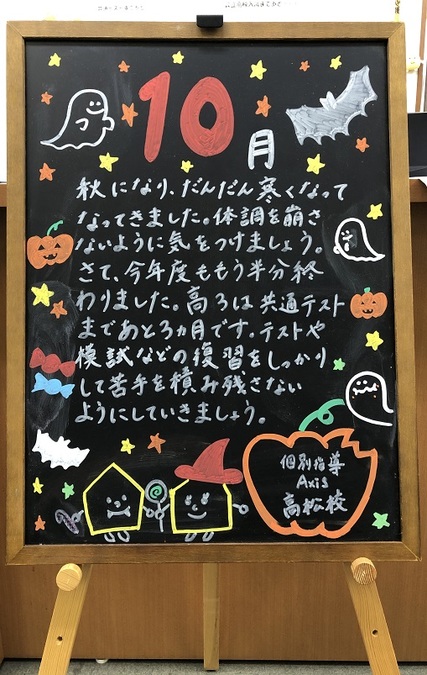 10月
秋になり、だんだん寒くなって
なってきました。体調を崩さ
ないように気をつけましょう。
さて、今年度ももう半分終
わりました。高3は共通テスト
まであと3ヵ月です。テストや
模試などの復習をしっかり
して苦手を積み残さない
ようにしていきましょう。
個別指導
Axis
高松校